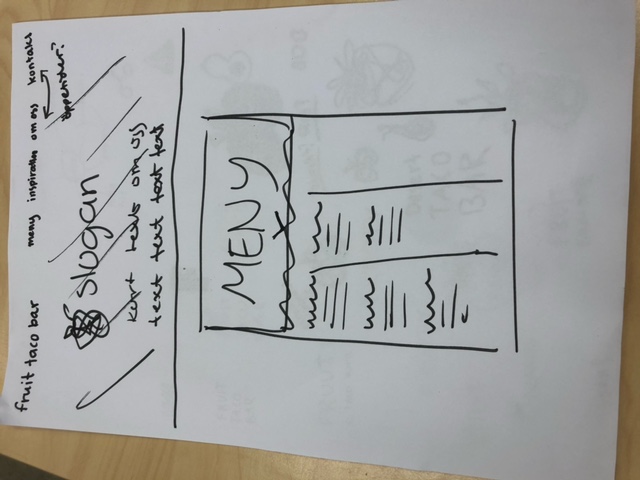 fruit taco bar
meny inspiration om oss kontakt
öppetider?
slogan
kort text om oss
text text text text
MENY